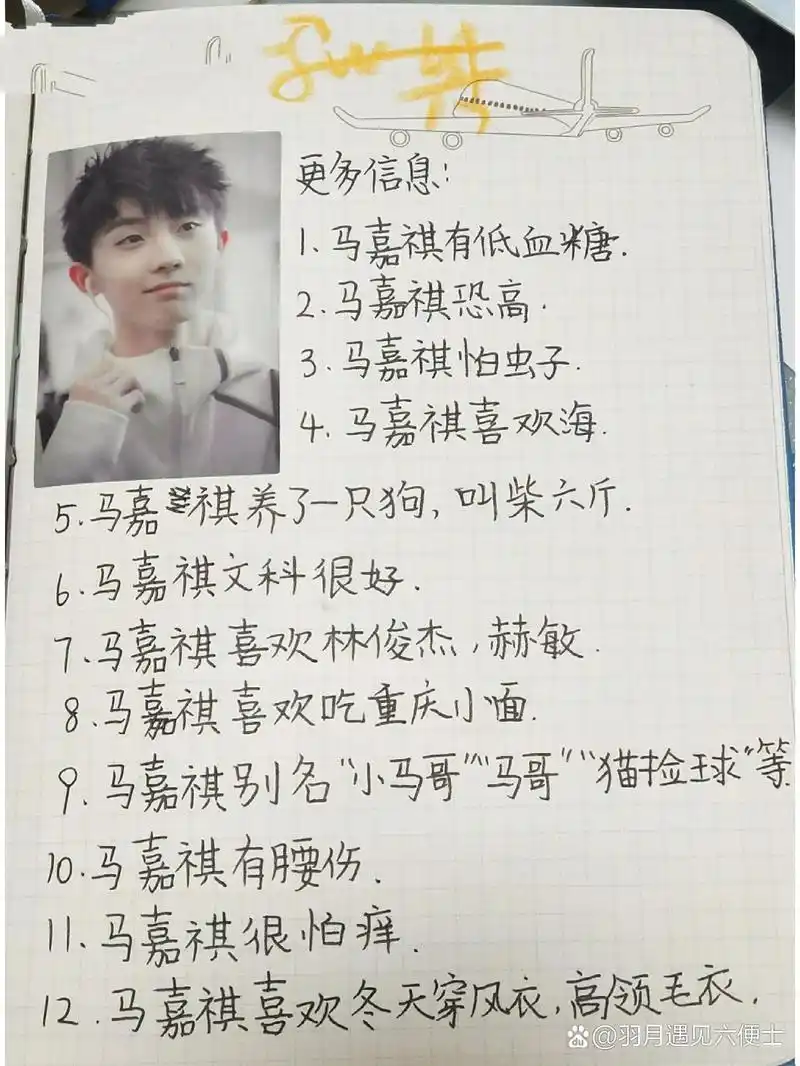 更多信息:
1.马嘉祺有低血糖.
2.马嘉祺恐高.
3.马嘉祺怕虫子.
4.马嘉祺喜欢海.
5.马嘉祺养了一只狗,叫柴六斤.
6.马嘉祺文科很好.
7.马嘉祺喜欢林俊杰,赫敏.
8.马嘉祺喜欢吃重庆小面.
9.马嘉祺别名“小马哥”“马哥”“猫捡球”等.
10.马嘉祺有腰伤.
11.马嘉祺很怕痒.
12.马嘉祺喜欢冬天穿风衣,高领毛衣.
Bai du @羽月遇见六便士